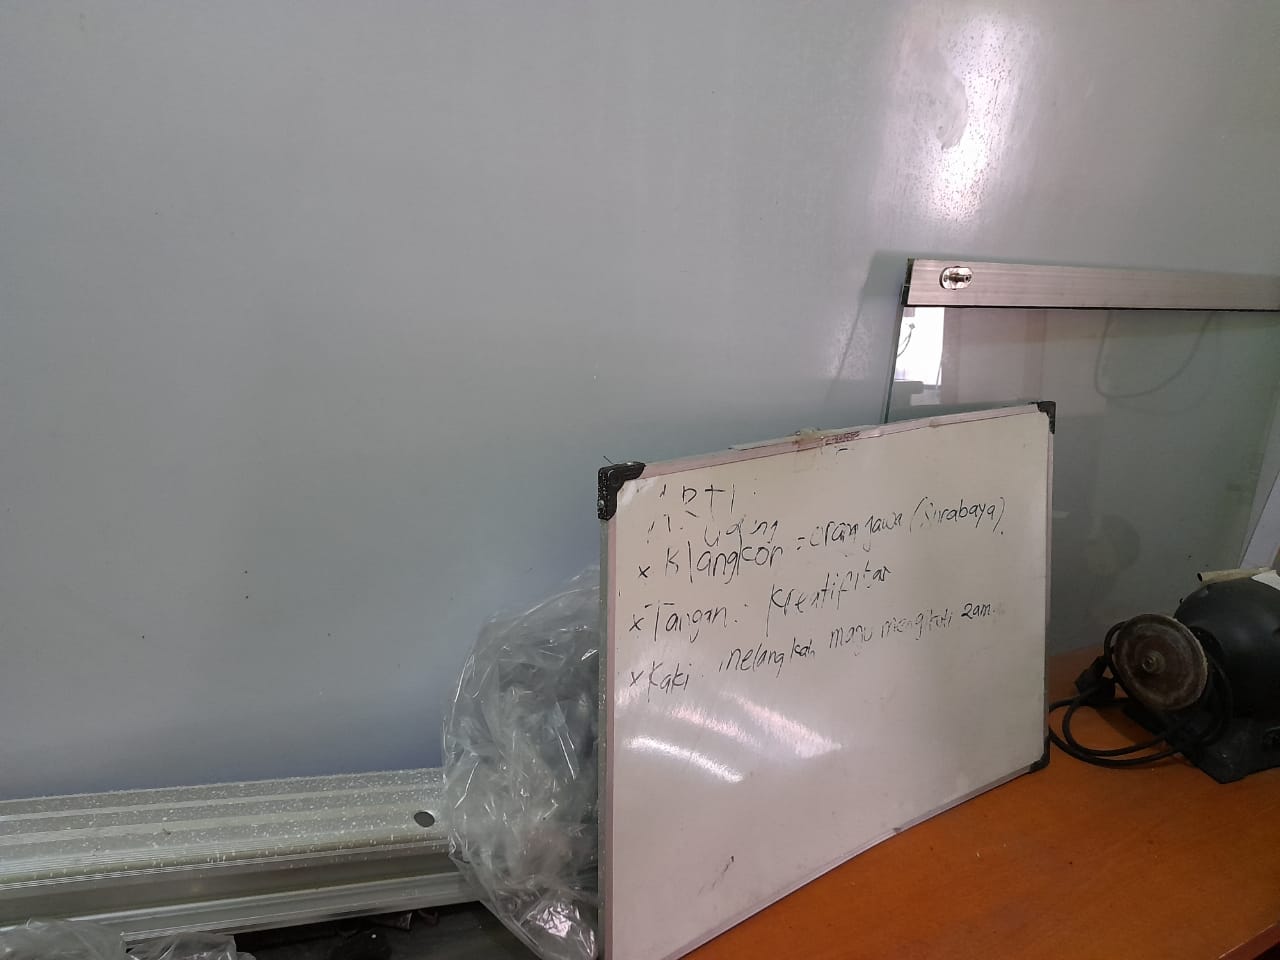 ARTI
x Klangkon = oran jawa (Surabaya)
x Tangan : Kreatifitas
x Kaki : melangkah maju mengikuti zam